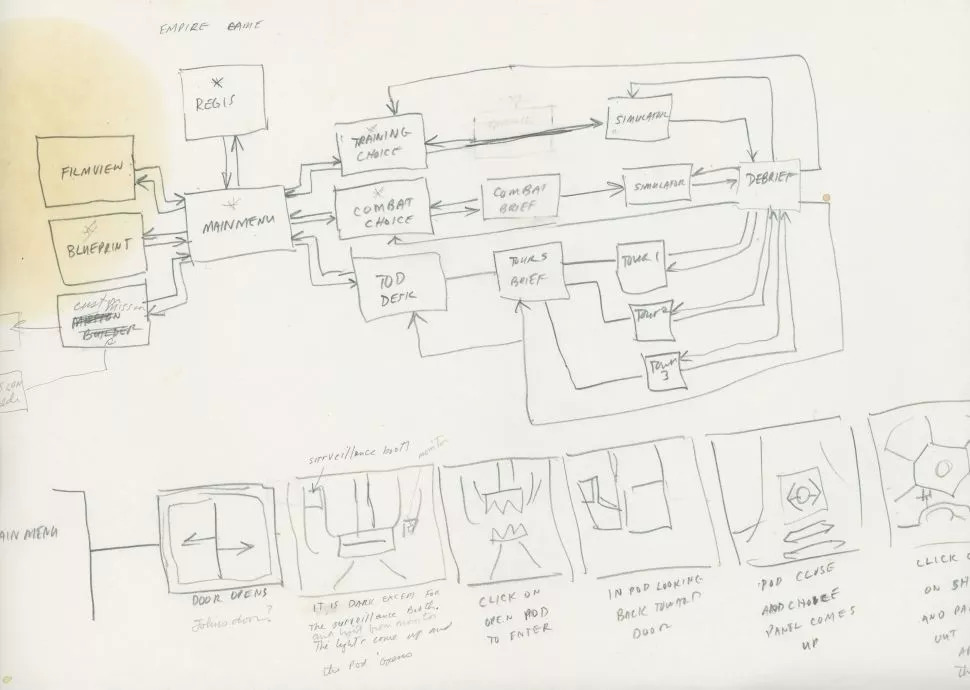 EMPIRE GAME
* REGIS
FILMVIEW
BLUEPRINT
custom mission
MISSION
BUILDER
MAIN MENU
TRAINING
CHOICE
COMBAT
CHOICE
TOD
DESK
COMBAT
BRIEF
TOURS
BRIEF
SIMULATOR
SIMULATOR
DEBRIEF
TOUR 1
TOUR 2
TOUR
3
AIN MENU
DOOR OPENS
surveillance booth
monitor
IT IS DARK EXCEPT FOR
The surveillance booth.
and light from monitor
The lights come up and
the Pod opens
CLICK ON
OPEN POD
TO ENTER
IN POD LOOKING
BACK TOWARD
DOOR
POD CLOSE
AND CHOICE
PANEL COMES
UP
CLICK
ON SH
AND PA
OUT